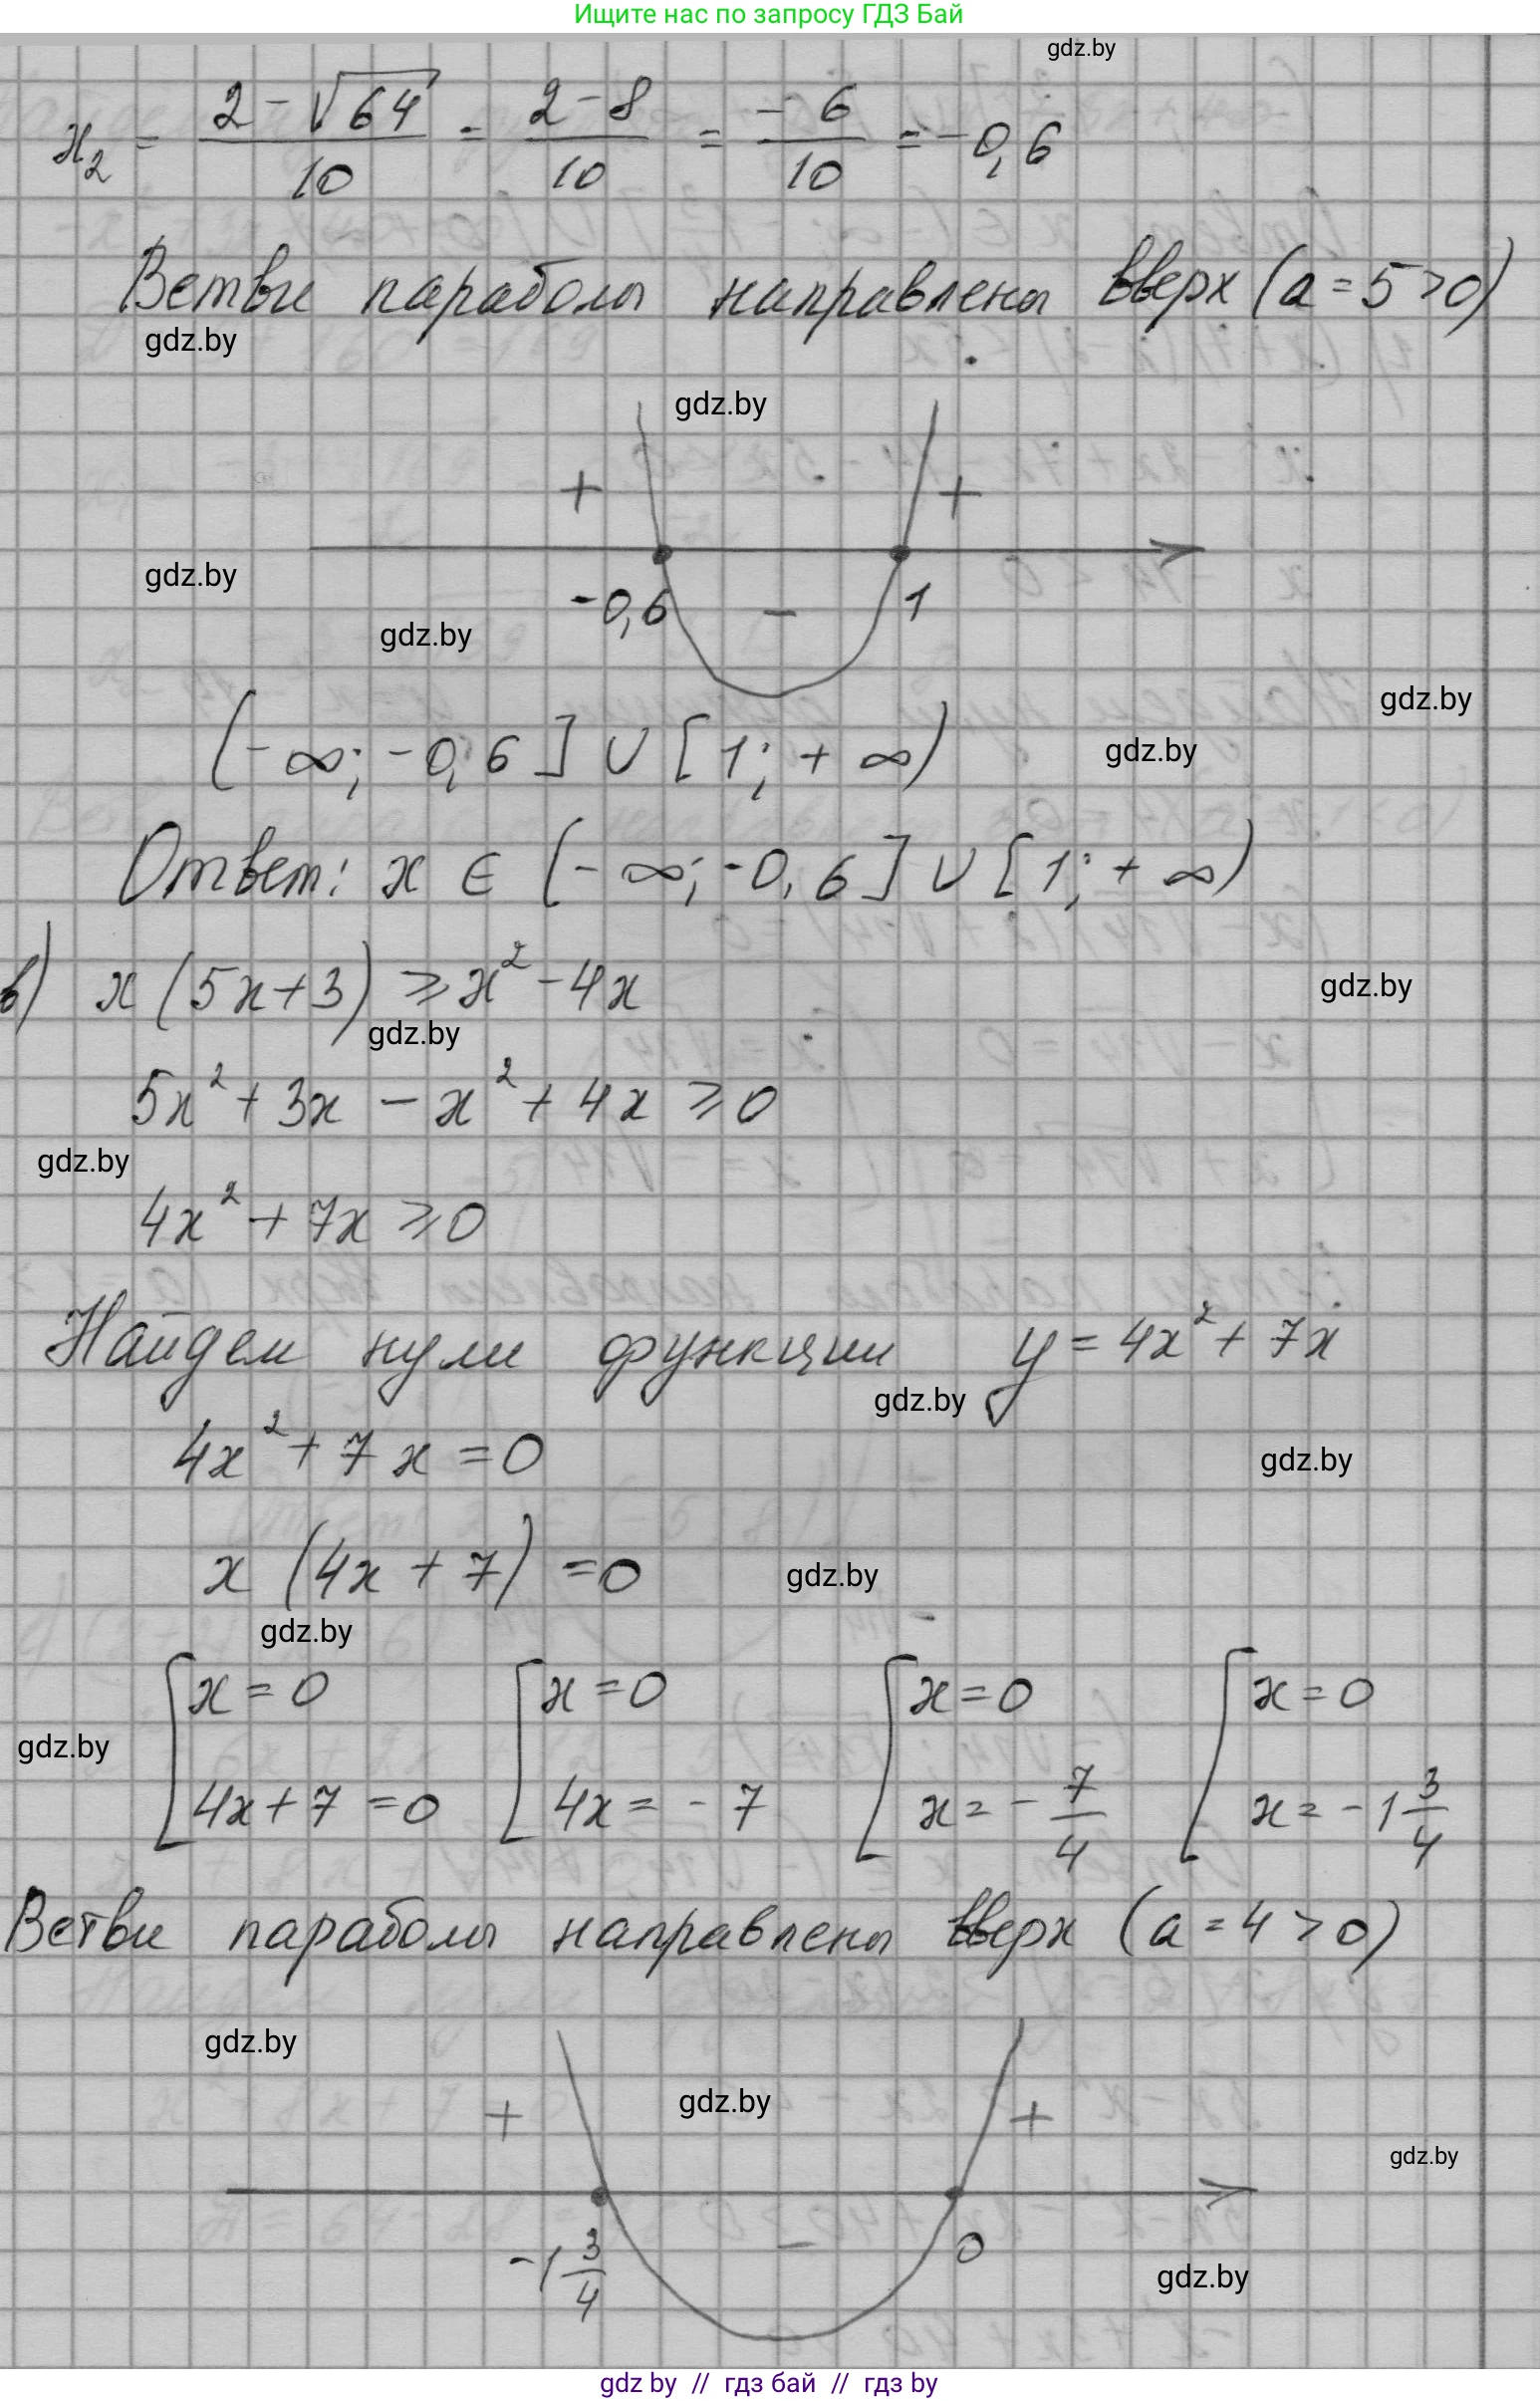 Ищите нас по запросу ГДЗ Бай
gdz.by
x₂ = (2 - √64)/10 = (2 - 8)/10 = (- 6)/10 = -0,6
Ветви параболы направлены вверх (a = 5 > 0)
gdz.by
gdz.by
+ +
gdz.by
-0,6 - 1
gdz.by
gdz.by
(-∞; -0,6] ∪ [1; +∞)
gdz.by
Ответ: x ∈ (-∞; -0,6] ∪ [1; +∞)
в) x (5x+3) ⩾ x² - 4x
gdz.by
gdz.by
5x² + 3x - x² + 4x ⩾ 0
gdz.by
4x² + 7x ⩾ 0
Найдем нули функции y = 4x² + 7x
gdz.by
4x² + 7x = 0
gdz.by
x (4x + 7) = 0
gdz.by
gdz.by
[x = 0 [x = 0 [x = 0 [x = 0
gdz.by
4x + 7 = 0 4x = - 7 x = - 7/4 x = -1 3/4
Ветви параболы направлены вверх (a = 4 > 0)
gdz.by
gdz.by
+ +
gdz.by
-1 3/4 - 0
gdz.by
gdz by // гдз бай // гдз by